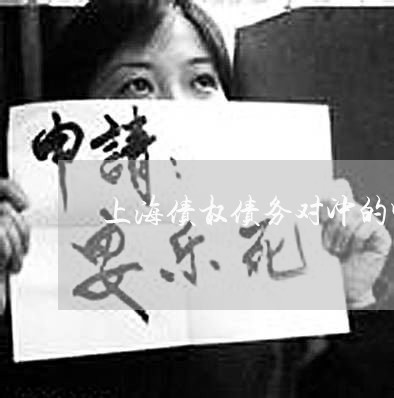 申請：
上海债权债务对冲的
安乐死